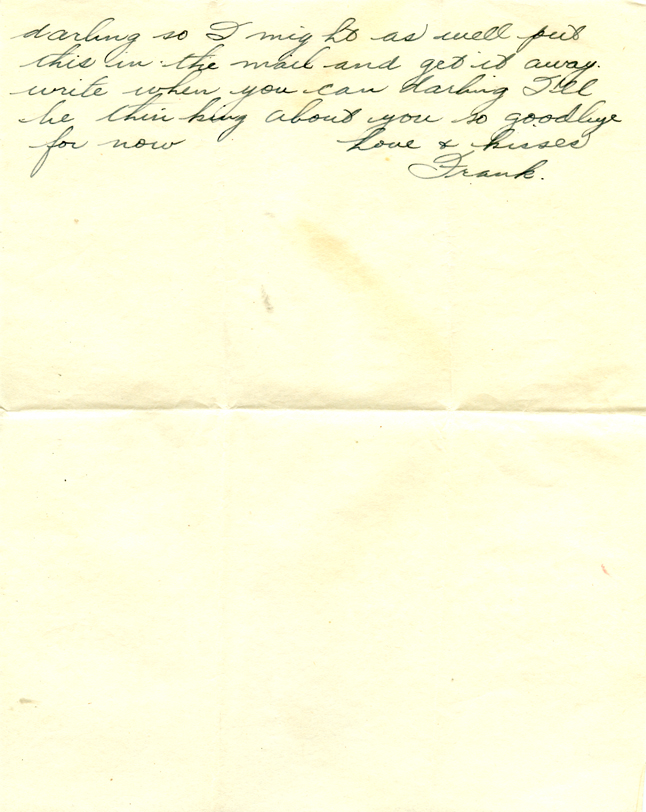 darling so I might as well put
this in the mail and get it away.
write when you can darling I'll
be thinking about you so goodbye
for now Love & kisses
Frank.